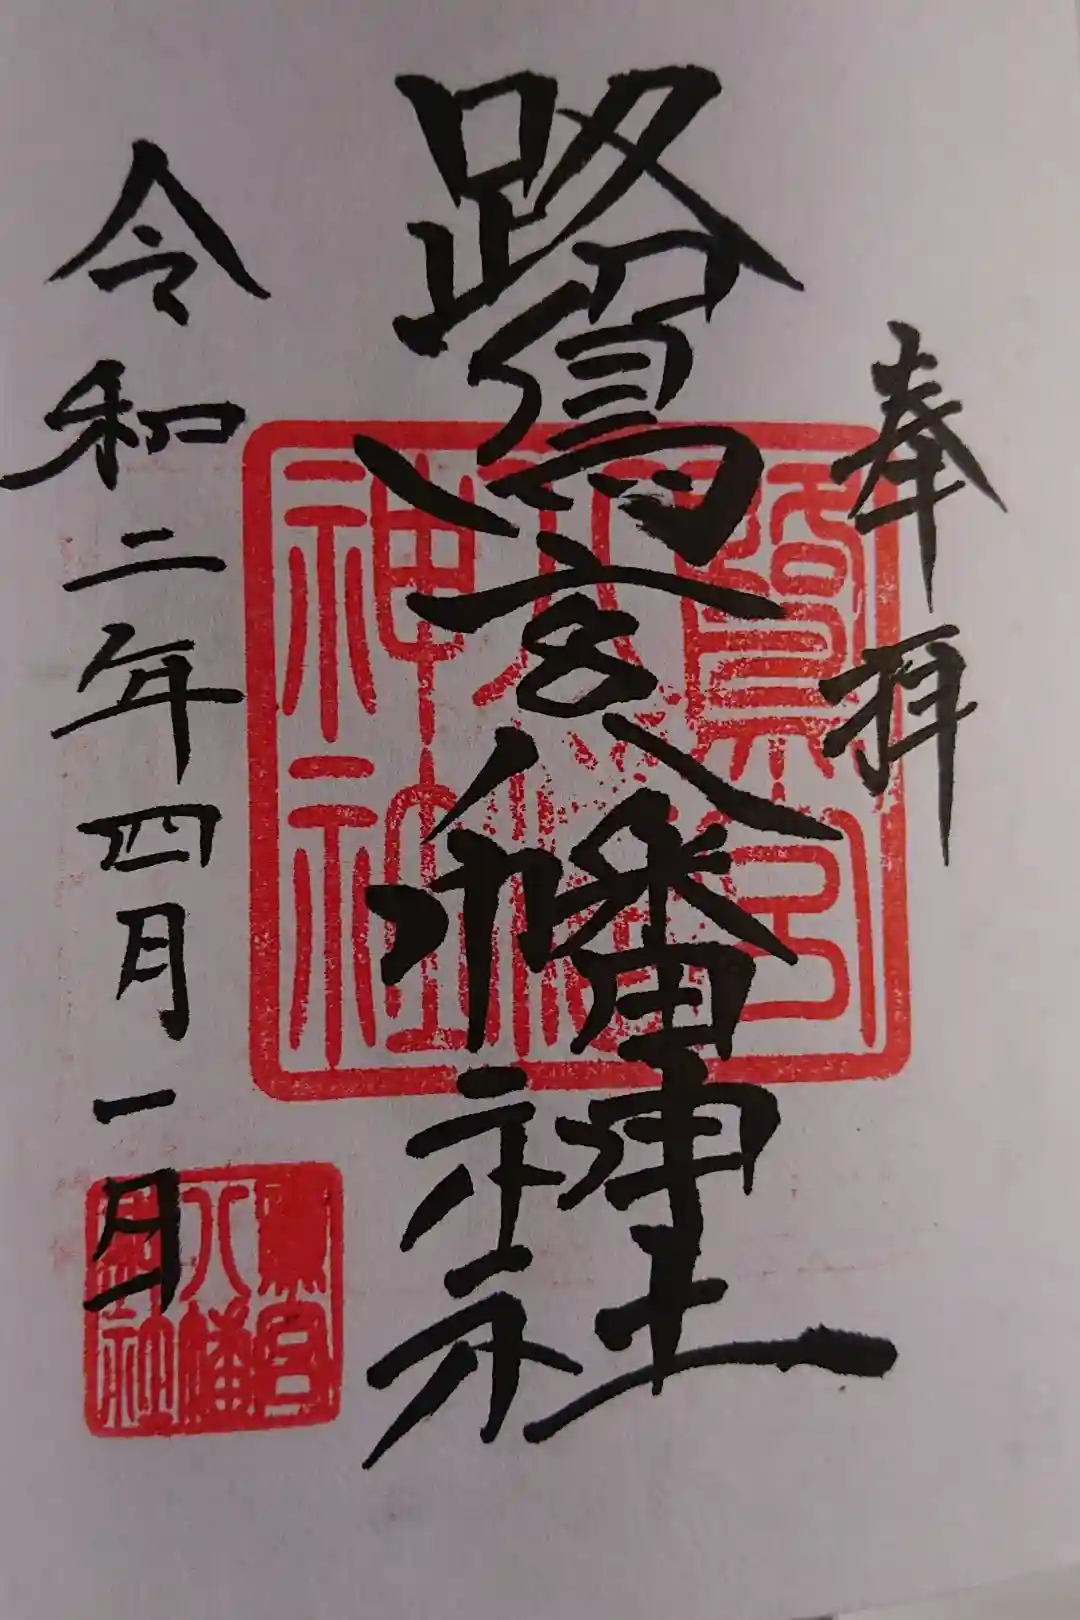 奉拝
鷺宮八幡神社
令和二年四月一日
鷺宮
八幡
神社
鷺宮
八幡
神社